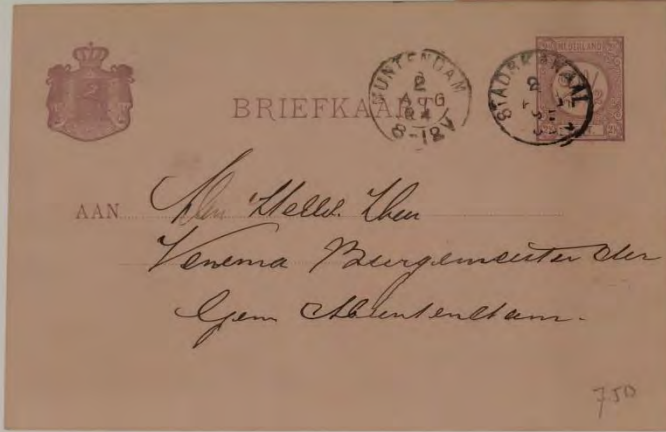 NEDERLAND
MUNTENDAM
2
AUG
84
8-12V
STADSKANAAL
2
BRIEFKAART
AAN Den Weled. Heer
Venema Burgemeester der
Gem Muntendam.
750